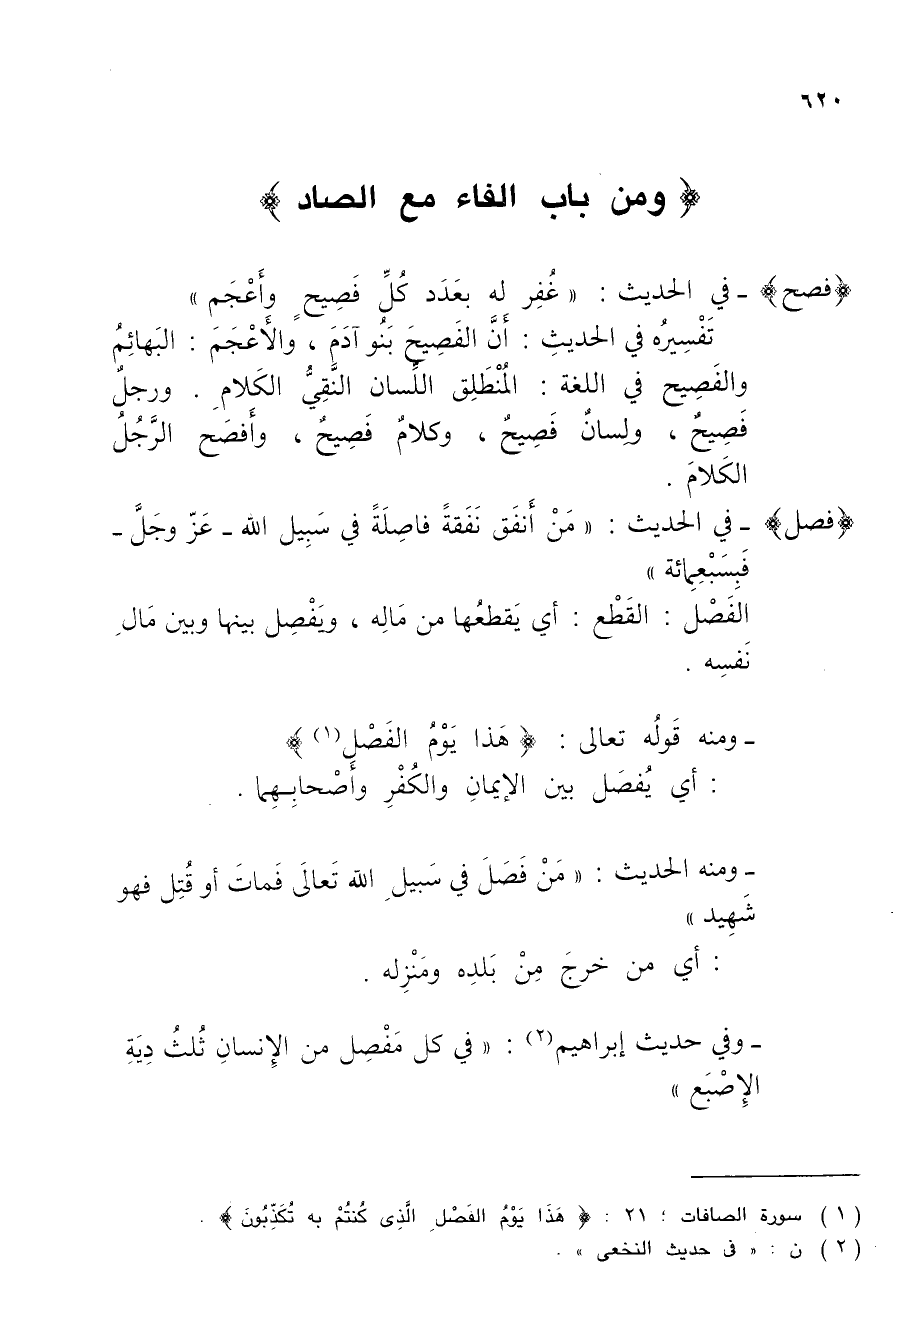 ٦٢٠
﴿ ومن باب الفاء مع الصاد ﴾
﴿فصح﴾ ـ في الحديث : « غُفِر له بعَدَد كُلِّ فَصِيحٍ وأَعْجَم »
تَفْسِيرُه في الحديثِ : أَنَّ الفَصِيحَ بَنُو آدَمَ ، والأَعْجَمَ : البَهائِمُ
والفَصِيح في اللغة : المُنْطَلِق اللِّسان النَّقِيُّ الكَلامِ . ورجلٌ
فَصِيحٌ ، ولِسانٌ فَصِيحٌ ، وكلامٌ فَصِيحٌ ، وأفصَح الرَّجُلُ
الكَلامَ .
﴿فصل﴾ ـ في الحديث : « مَنْ أَنفَق نَفَقةً فاصِلَةً في سَبِيل الله ـ عَزّ وجَلَّ ـ
فَبِسَبْعِمِائة »
الفَصْل : القَطْع : أي يَقطعُها من مَالِه ، ويَفْصِل بينها وبين مَالِ
نَفسِه .
ـ ومنه قَولُه تعالى : ﴿ هَذا يَوْمُ الفَصْلِ(١) ﴾
: أي يُفصَل بين الإيمانِ والكُفْرِ وأَصْحابِهِما .
ـ ومنه الحديث : « مَنْ فَصَلَ في سَبيلِ الله تَعالَى فَماتَ أو قُتِل فهو
شَهِيد »
: أي من خرجَ مِنْ بَلدِه ومَنْزِله .
ـ وفي حديث إبراهيم(٢) : « في كل مَفْصِل من الإِنسانِ ثُلثُ دِيَةِ
الإِصْبَع »
(١) سورة الصافات : ٢١ : ﴿ هَذَا يَوْمُ الفَصْلِ الَّذِى كُنتُمْ بِه تُكَذِّبُونَ ﴾ .
(٢) ن : « فى حديث النخعى » .